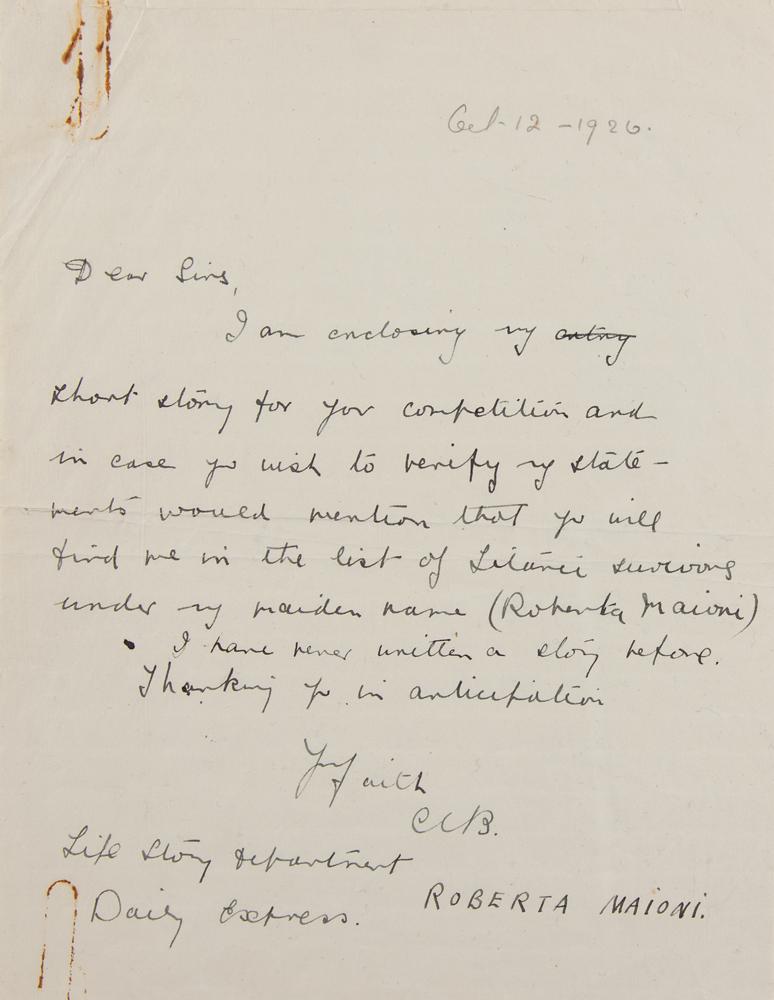 Oct. 12 - 1926.
Dear Sirs,
I am enclosing my entry
short story for your competition and
in case yo wish to verify my state-
ments would mention that yo will
find me in the list of Titanic survivors
under my maiden name (Roberta Maioni)
I have never written a story before.
Thanking yo in anticipation
Yrs faith
CCB.
Life Story Department
Daily Express.
ROBERTA MAIONI.